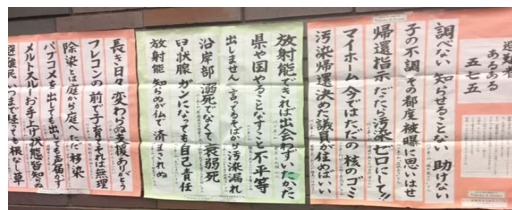 避難者
あるある
五七五
調べない 知らせることない 助けない
子の不調 その都度被曝に思いはせ
帰還指示 だしたら汚染ゼロにして!!
マイホーム 今ではただの核のゴミ
汚染帰還決めた議員が住めばいい
放射能できれば出会わずいたかった
県や国やることなすこと不平等
出しません 言ってるそばから汚染漏れ
沿岸部 溺死でなくて衰弱死
甲状腺ガンになっても自己責任
放射能 知らぬが仏で済まされぬ
長き日々 変わらぬ支援ありがとう
フレコンの前で子育てそれは無理
除染とは庭から庭へただ移染
パブコメを出しても出しても声届かず
メルトスルー お手上げ状態皆知らぬ
避難民 いつまで経っても根なし草